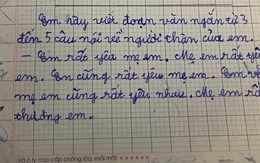 Em hãy viết đoạn văn ngắn từ 3
đến 5 câu nói về người thân của em.
- Em rất yêu mẹ em. Mẹ em rất yêu
em. Em cũng rất yêu mẹ em. Em và
mẹ em cũng rất yêu nhau. Mẹ em rất
thương em.